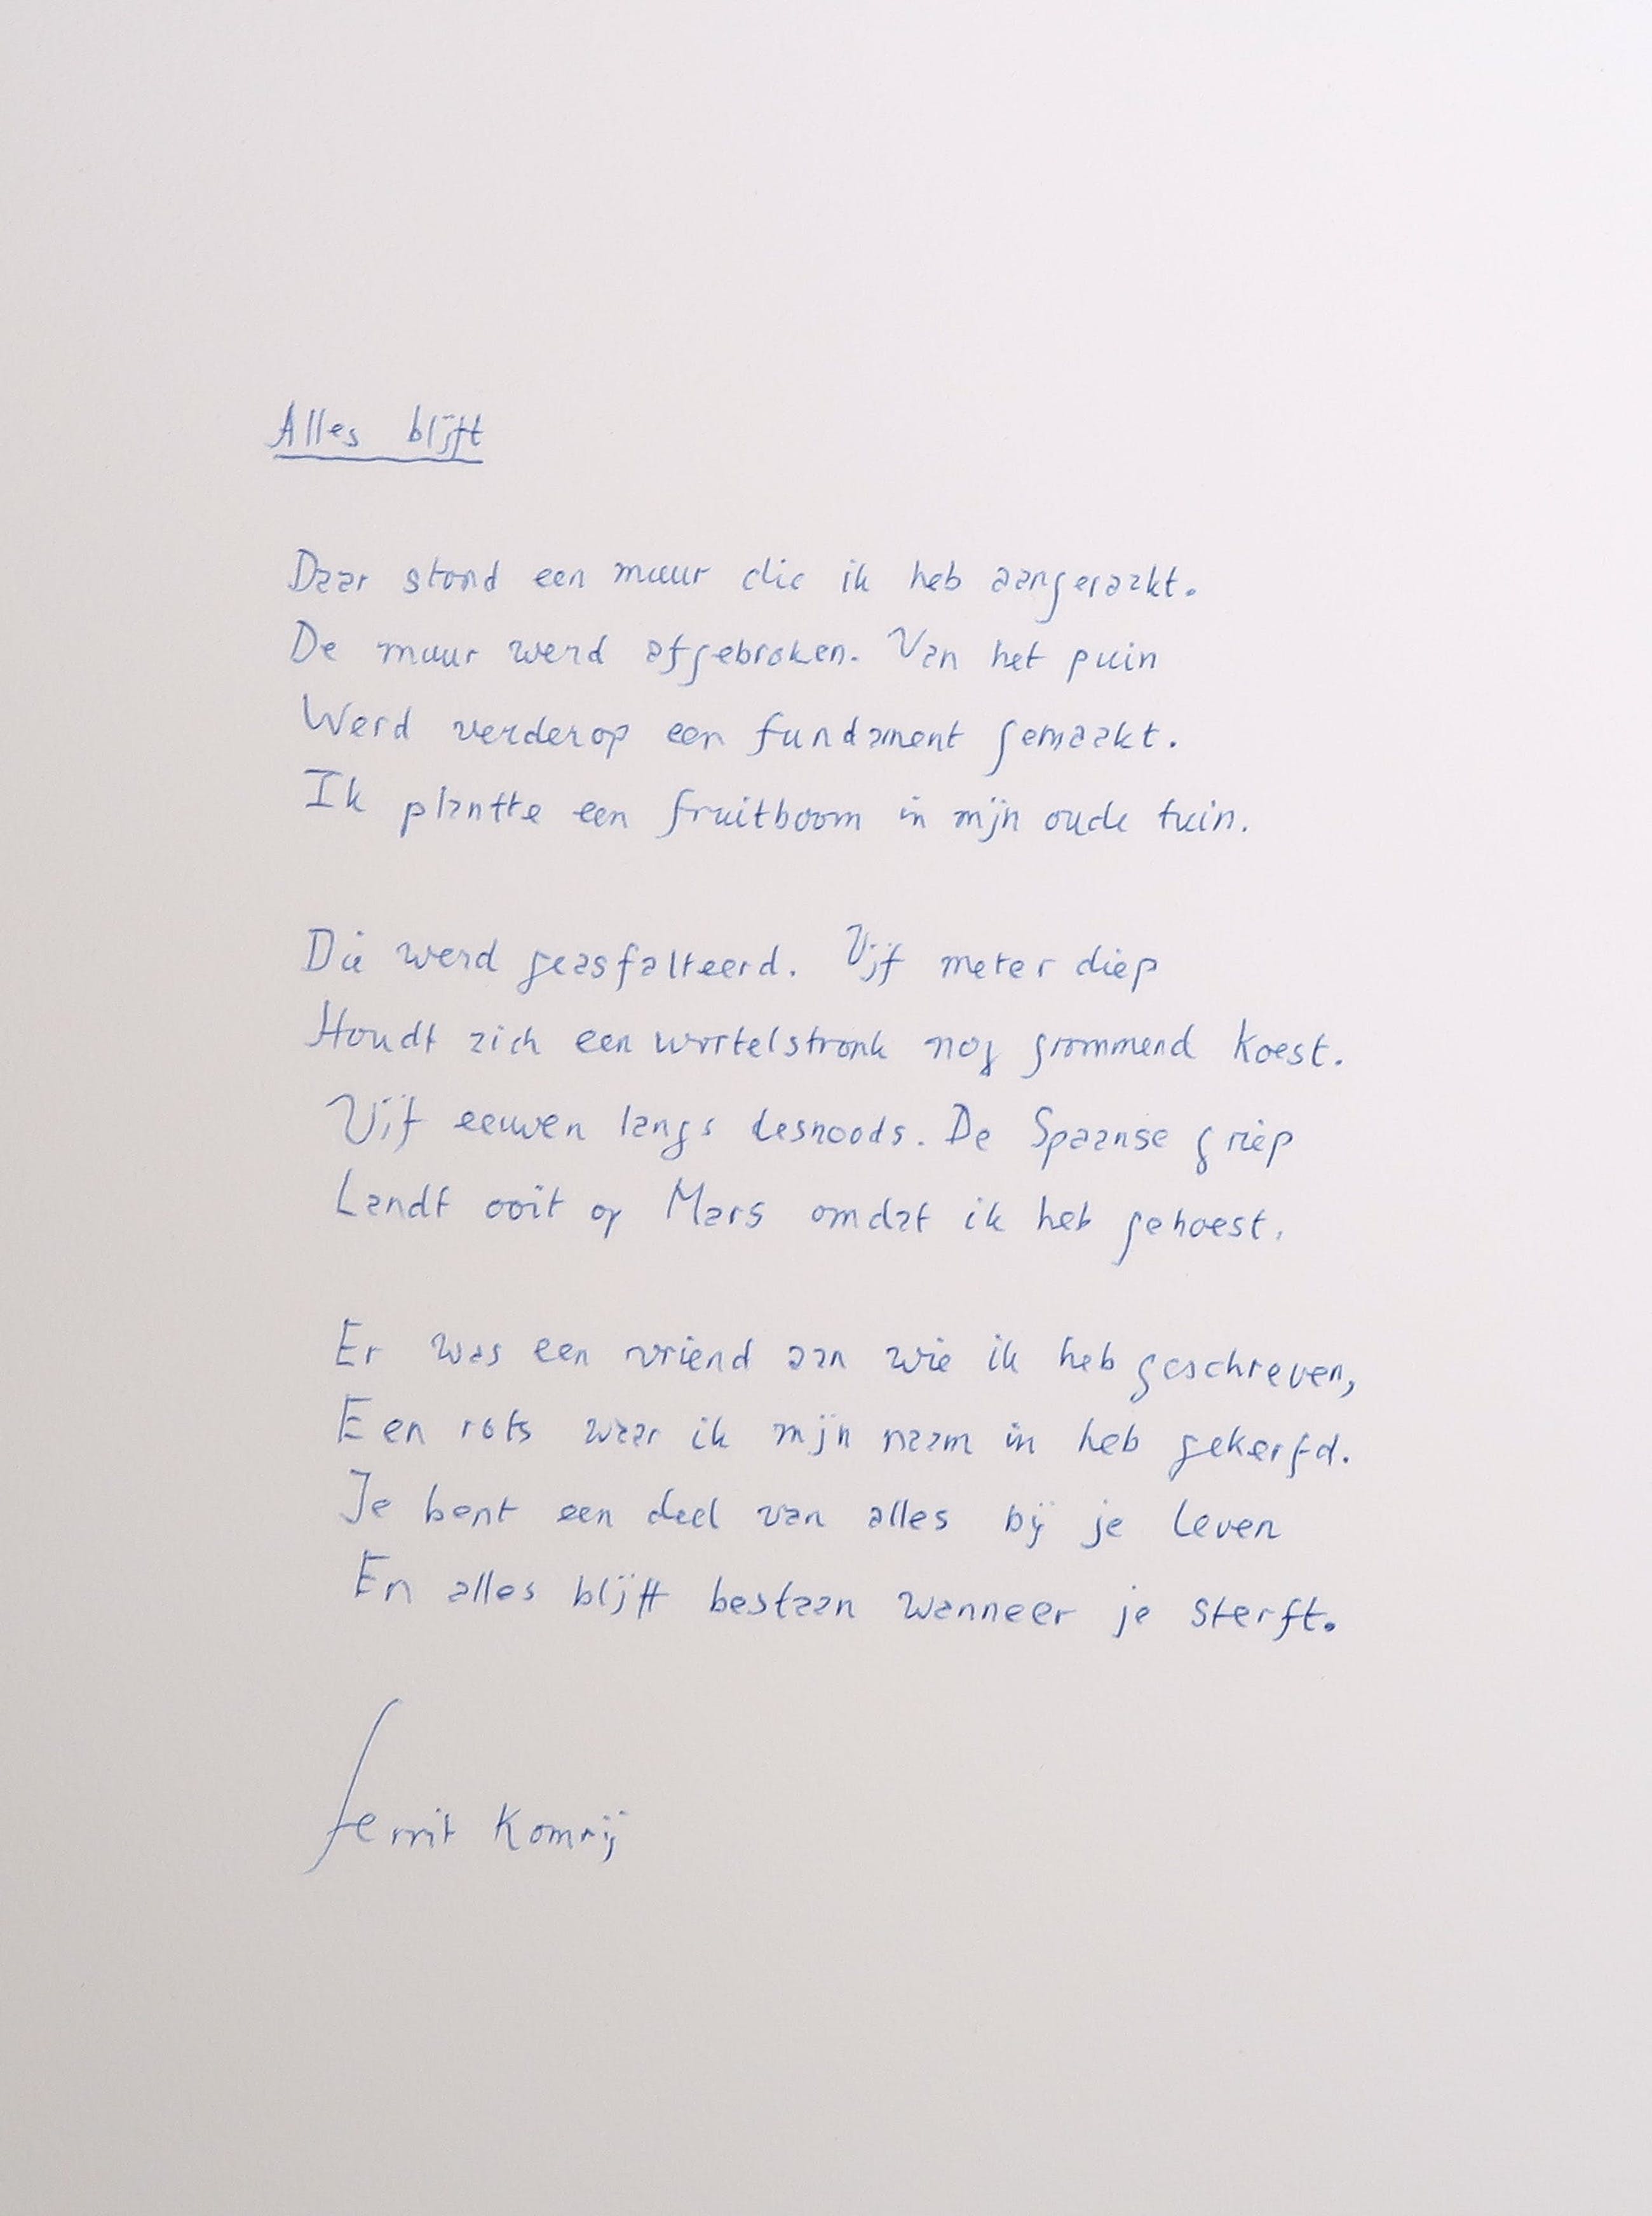 Alles blijft
Daar stond een muur die ik heb aangeraakt.
De muur werd afgebroken. Van het puin
Werd verderop een fundament gemaakt.
Ik plantte een fruitboom in mijn oude tuin.
Die werd geasfalteerd. Vijf meter diep
Houdt zich een wortelstronk nog grommend koest.
Vijf eeuwen langs desnoods. De Spaanse griep
Landt ooit op Mars omdat ik heb gehoest.
Er was een vriend aan wie ik heb geschreven,
Een rots waar ik mijn naam in heb gekerfd.
Je bent een deel van alles bij je leven
En alles blijft bestaan wanneer je sterft.
Gerrit Komrij